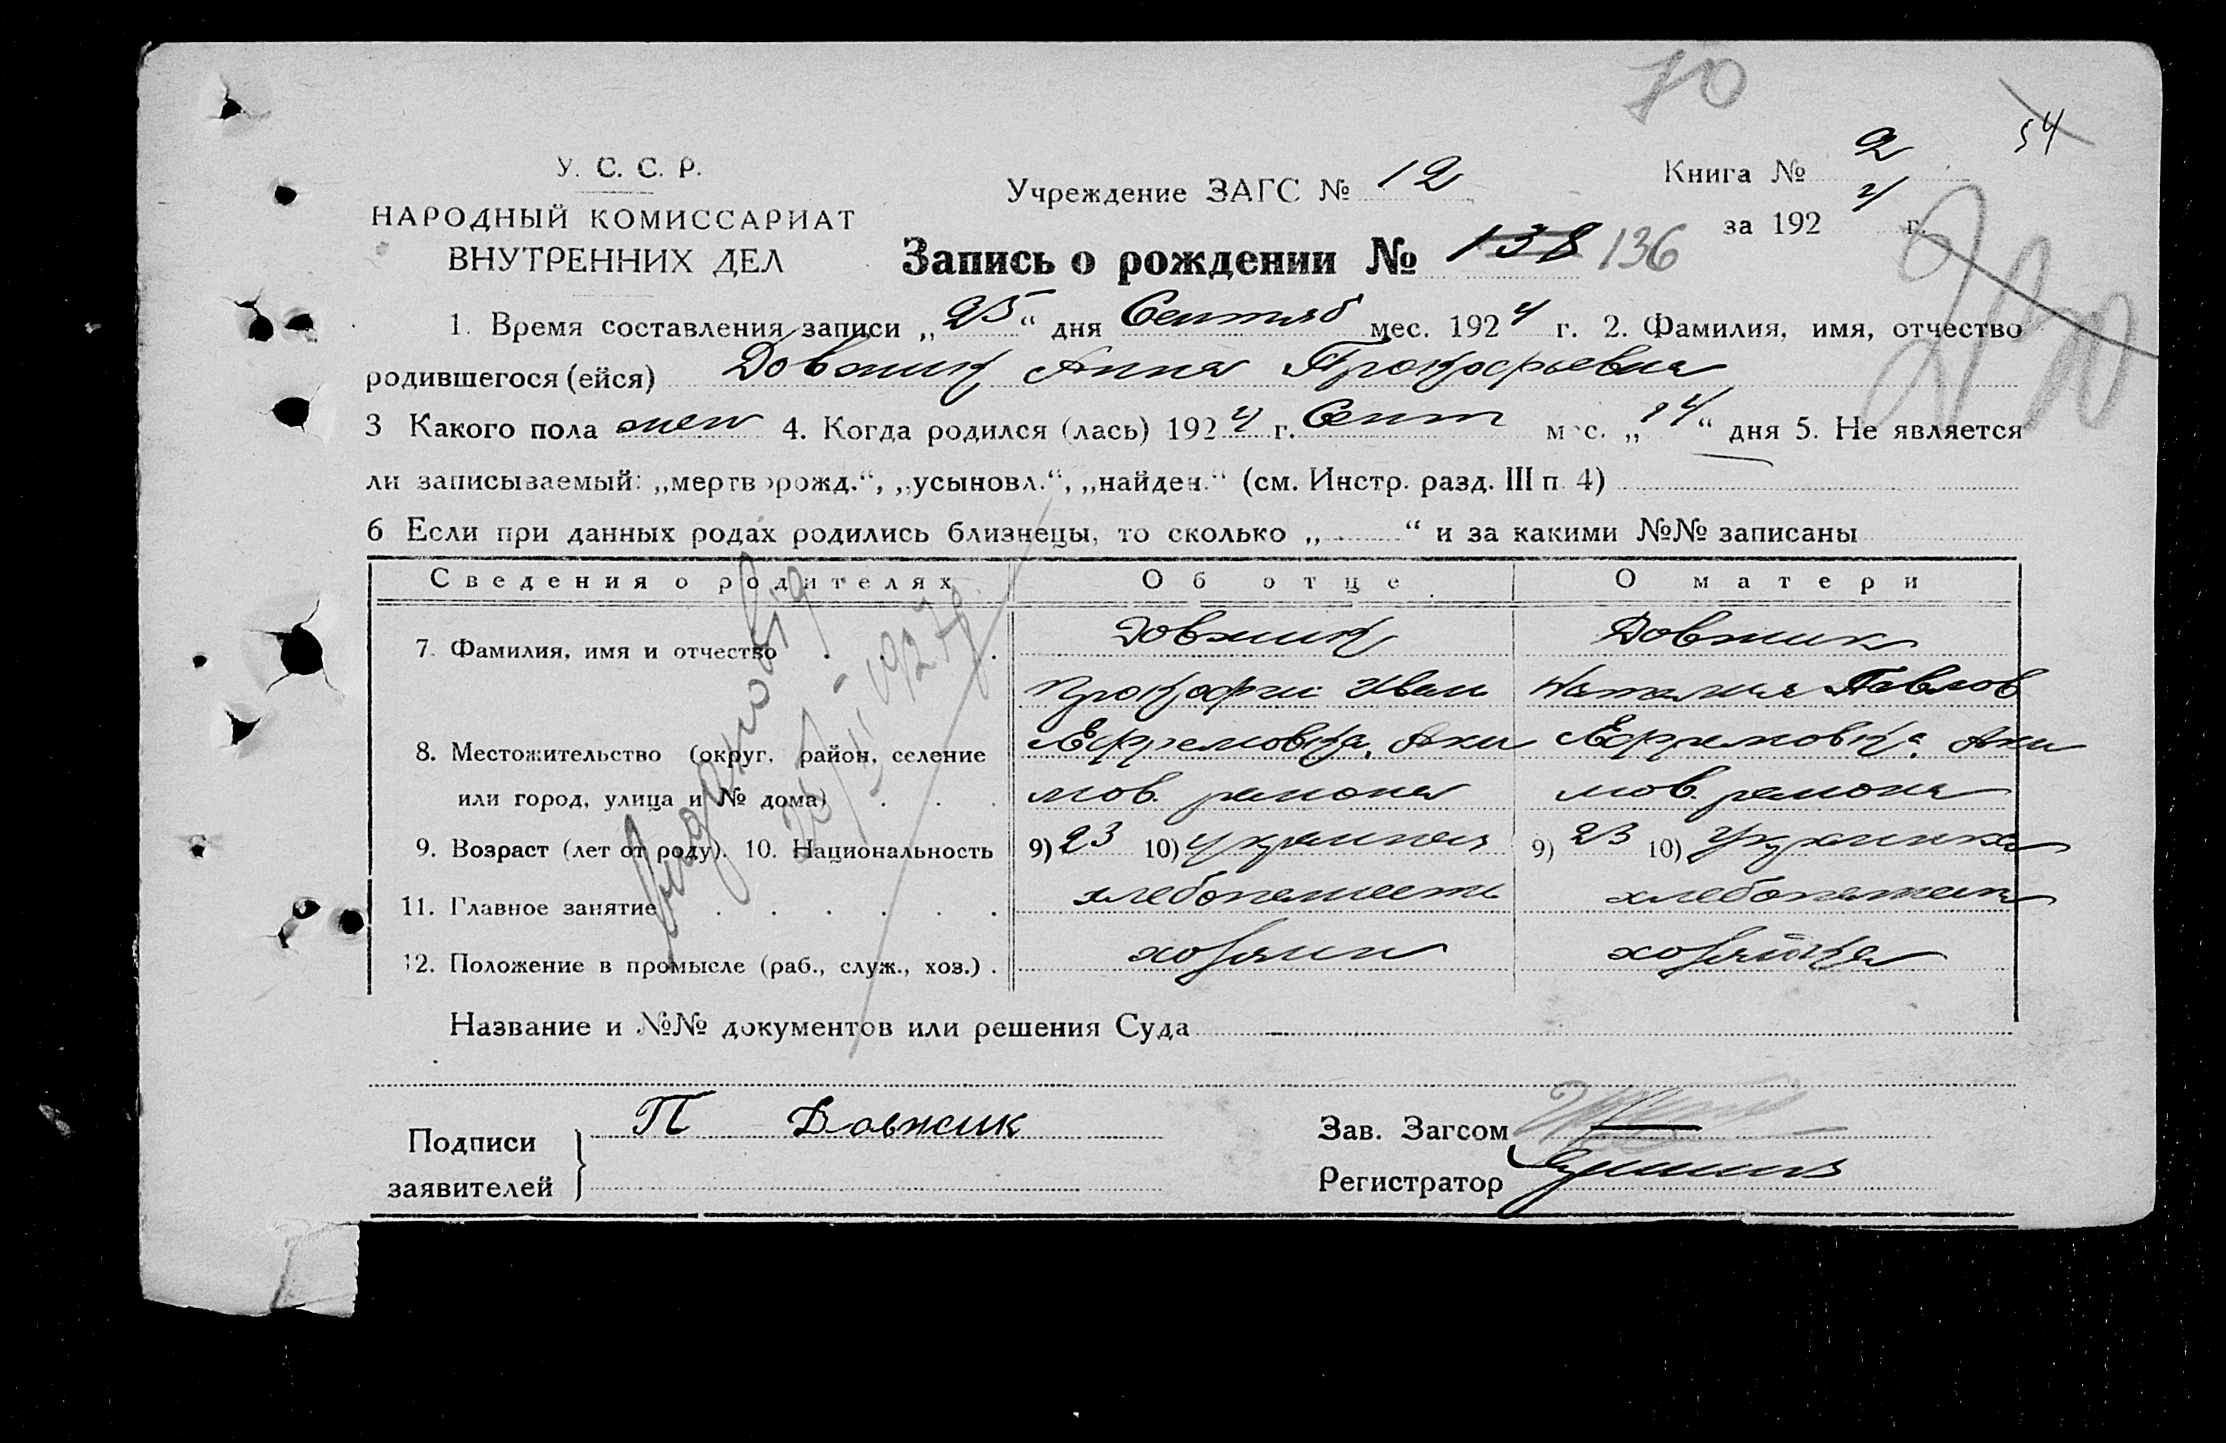 70
54
У. С. С. Р.
НАРОДНЫЙ КОМИССАРИАТ
ВНУТРЕННИХ ДЕЛ
Учреждение ЗАГС № 12
Книга № 2
за 1924 г.
Запись о рождении № 138 136
1. Время составления записи „25“ дня Сентяб мес. 1924 г. 2. Фамилия, имя, отчество
родившегося (ейся) Довжик Анна Прокофьевна
3 Какого пола жен 4. Когда родился (лась) 1924 г. Сент мес. „14“ дня 5. Не является
ли записываемый: „мертворожд.“, „усыновл.“, „найден.“ (см. Инстр. разд. III п. 4)
6 Если при данных родах родились близнецы, то сколько „ “ и за какими №№ записаны
Сведения о родителях Об отце О матери
7. Фамилия, имя и отчество Довжик Довжик
Прокофий Иван Наталия Павлов
8. Местожительство (округ, район, селение Ефремовка, Аки Ефремовка, Аки
или город, улица и № дома) мов. района мов. района
9. Возраст (лет от роду). 10. Национальность 9) 23 10) 9) 23 10) Украинка
11. Главное занятие хлебопашест хлебопашест
12. Положение в промысле (раб., служ., хоз.) хозяин хозяйка
Название и №№ документов или решения Суда
Подписи
заявителей
П Довжик
Зав. Загсом
Регистратор